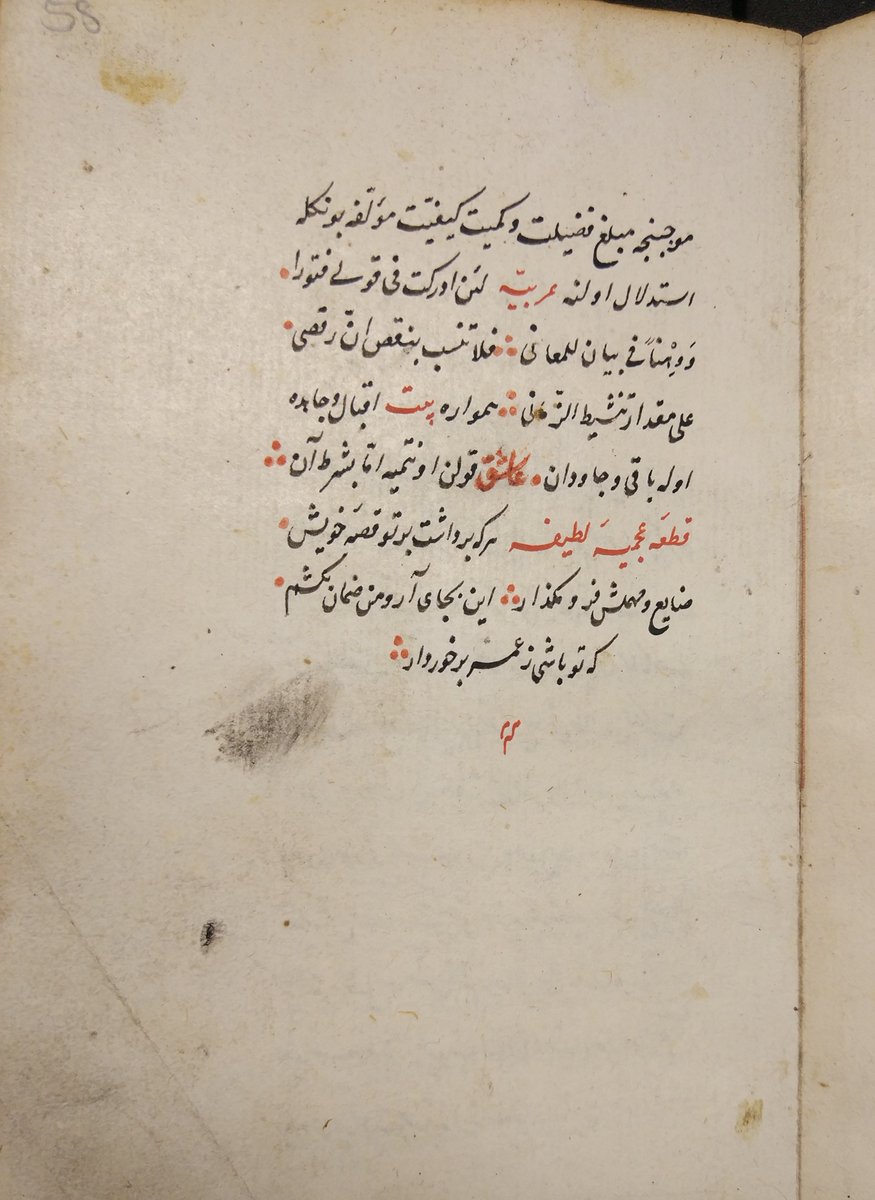 58
موجبنجه مبلغ فضیلت و کمیت کیفیّت مؤلّفه بونکله
استدلال اولنه عربیّه لئن ادرکت فی قولی فتورا
وَوَهْناً فی بیان للمعانی فلا تنسب بنقص انّ رقصی
علی مقدار تنشیط الزّمانی همواره بیت اقبال و جاهده
اوله باقی و جاودان عاشق قولن اونتمیه امّا بشرط آن
قطعَه عجمیهَ لطیفه هرکه برداشت بر تو قصهَ خویش
ضایع و مهملش فرو مکذار این بجای آر و من ضمان بکشم
که تو باشی ز عمر برخوردار
م م م